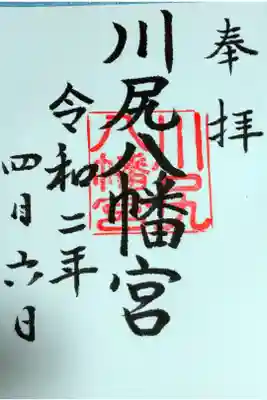 奉拝
川尻八幡宮
令和二年
四月六日
川尻八幡宮